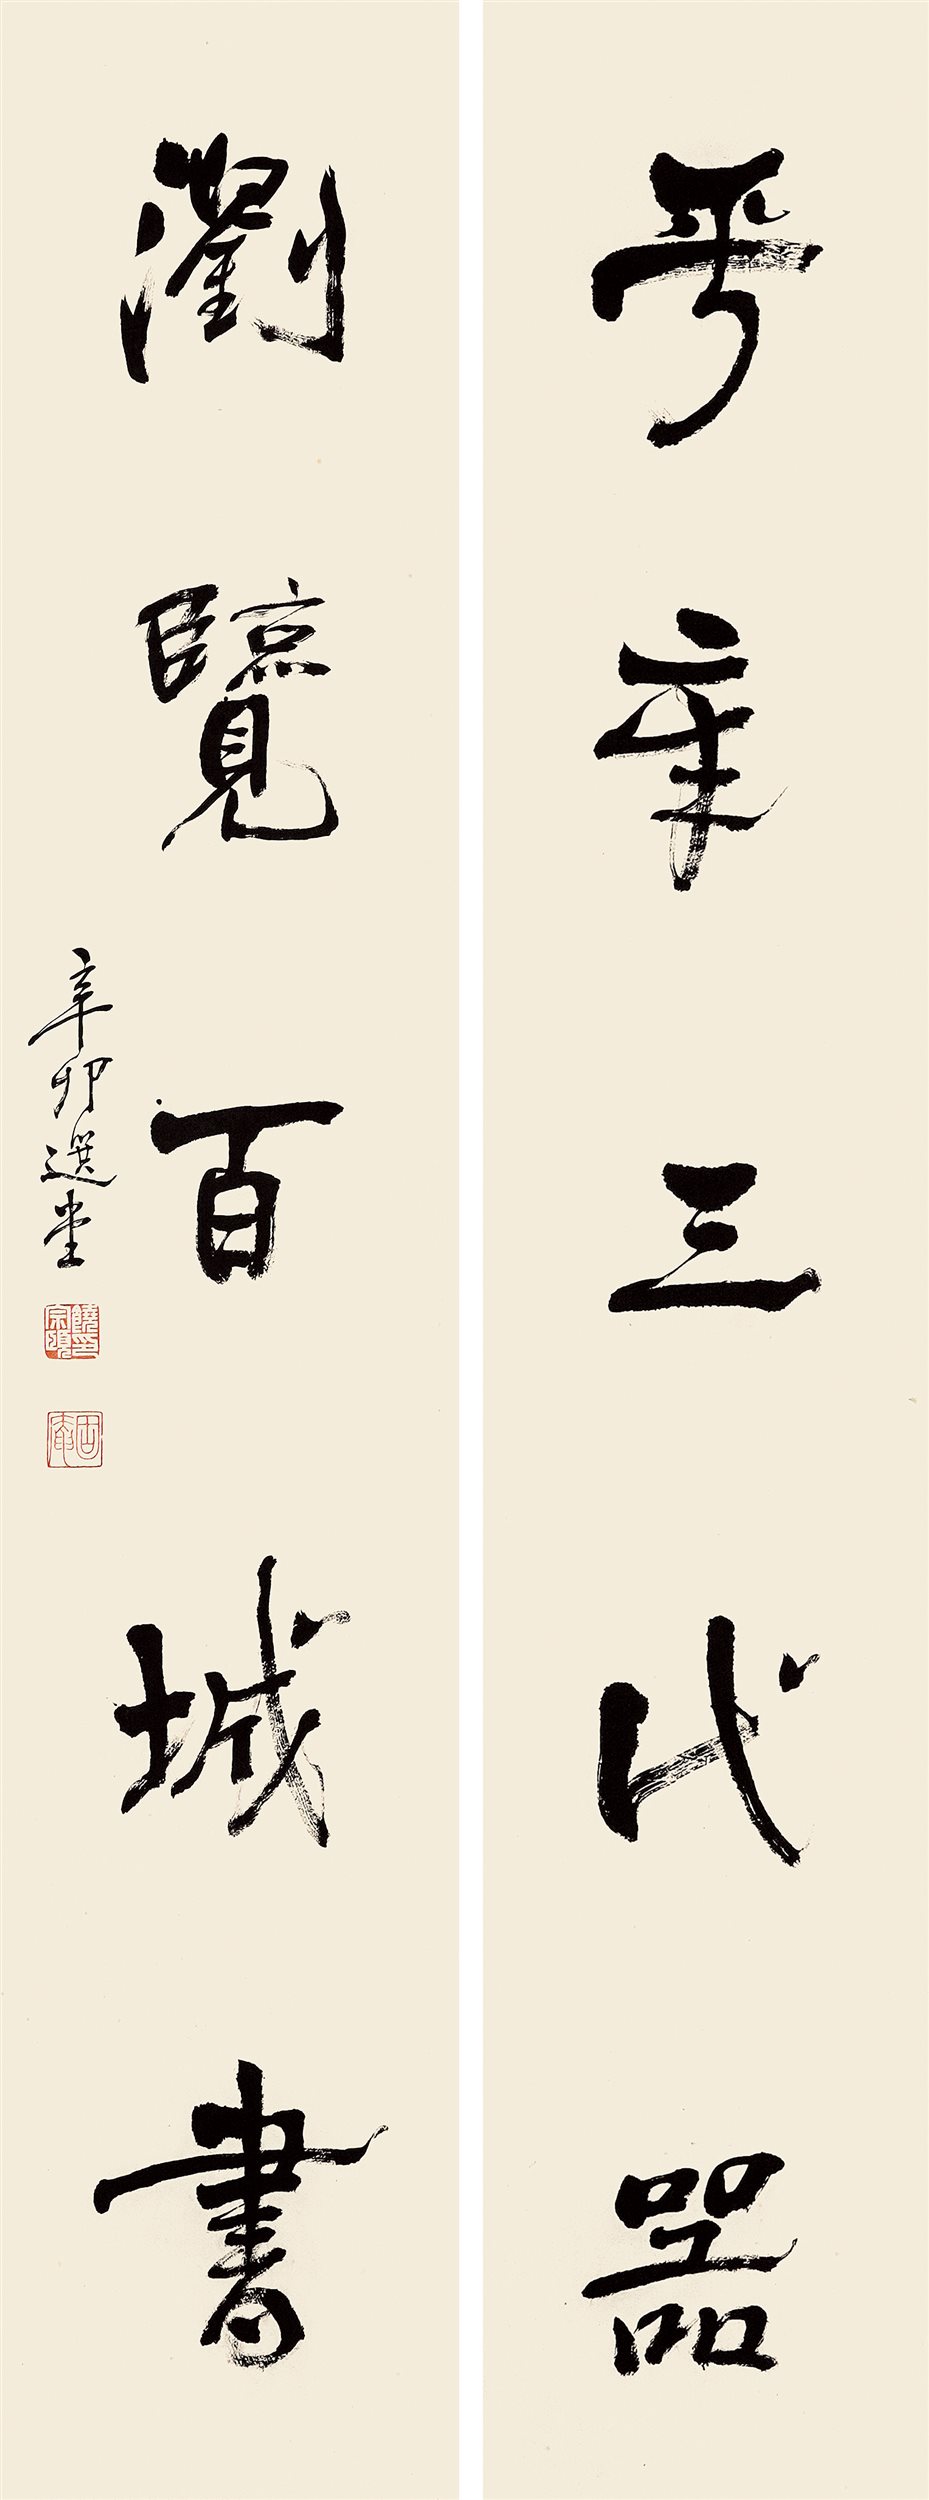 平章三代器
瀏覽百城書
辛卯選堂
饒宗頤印
固庵